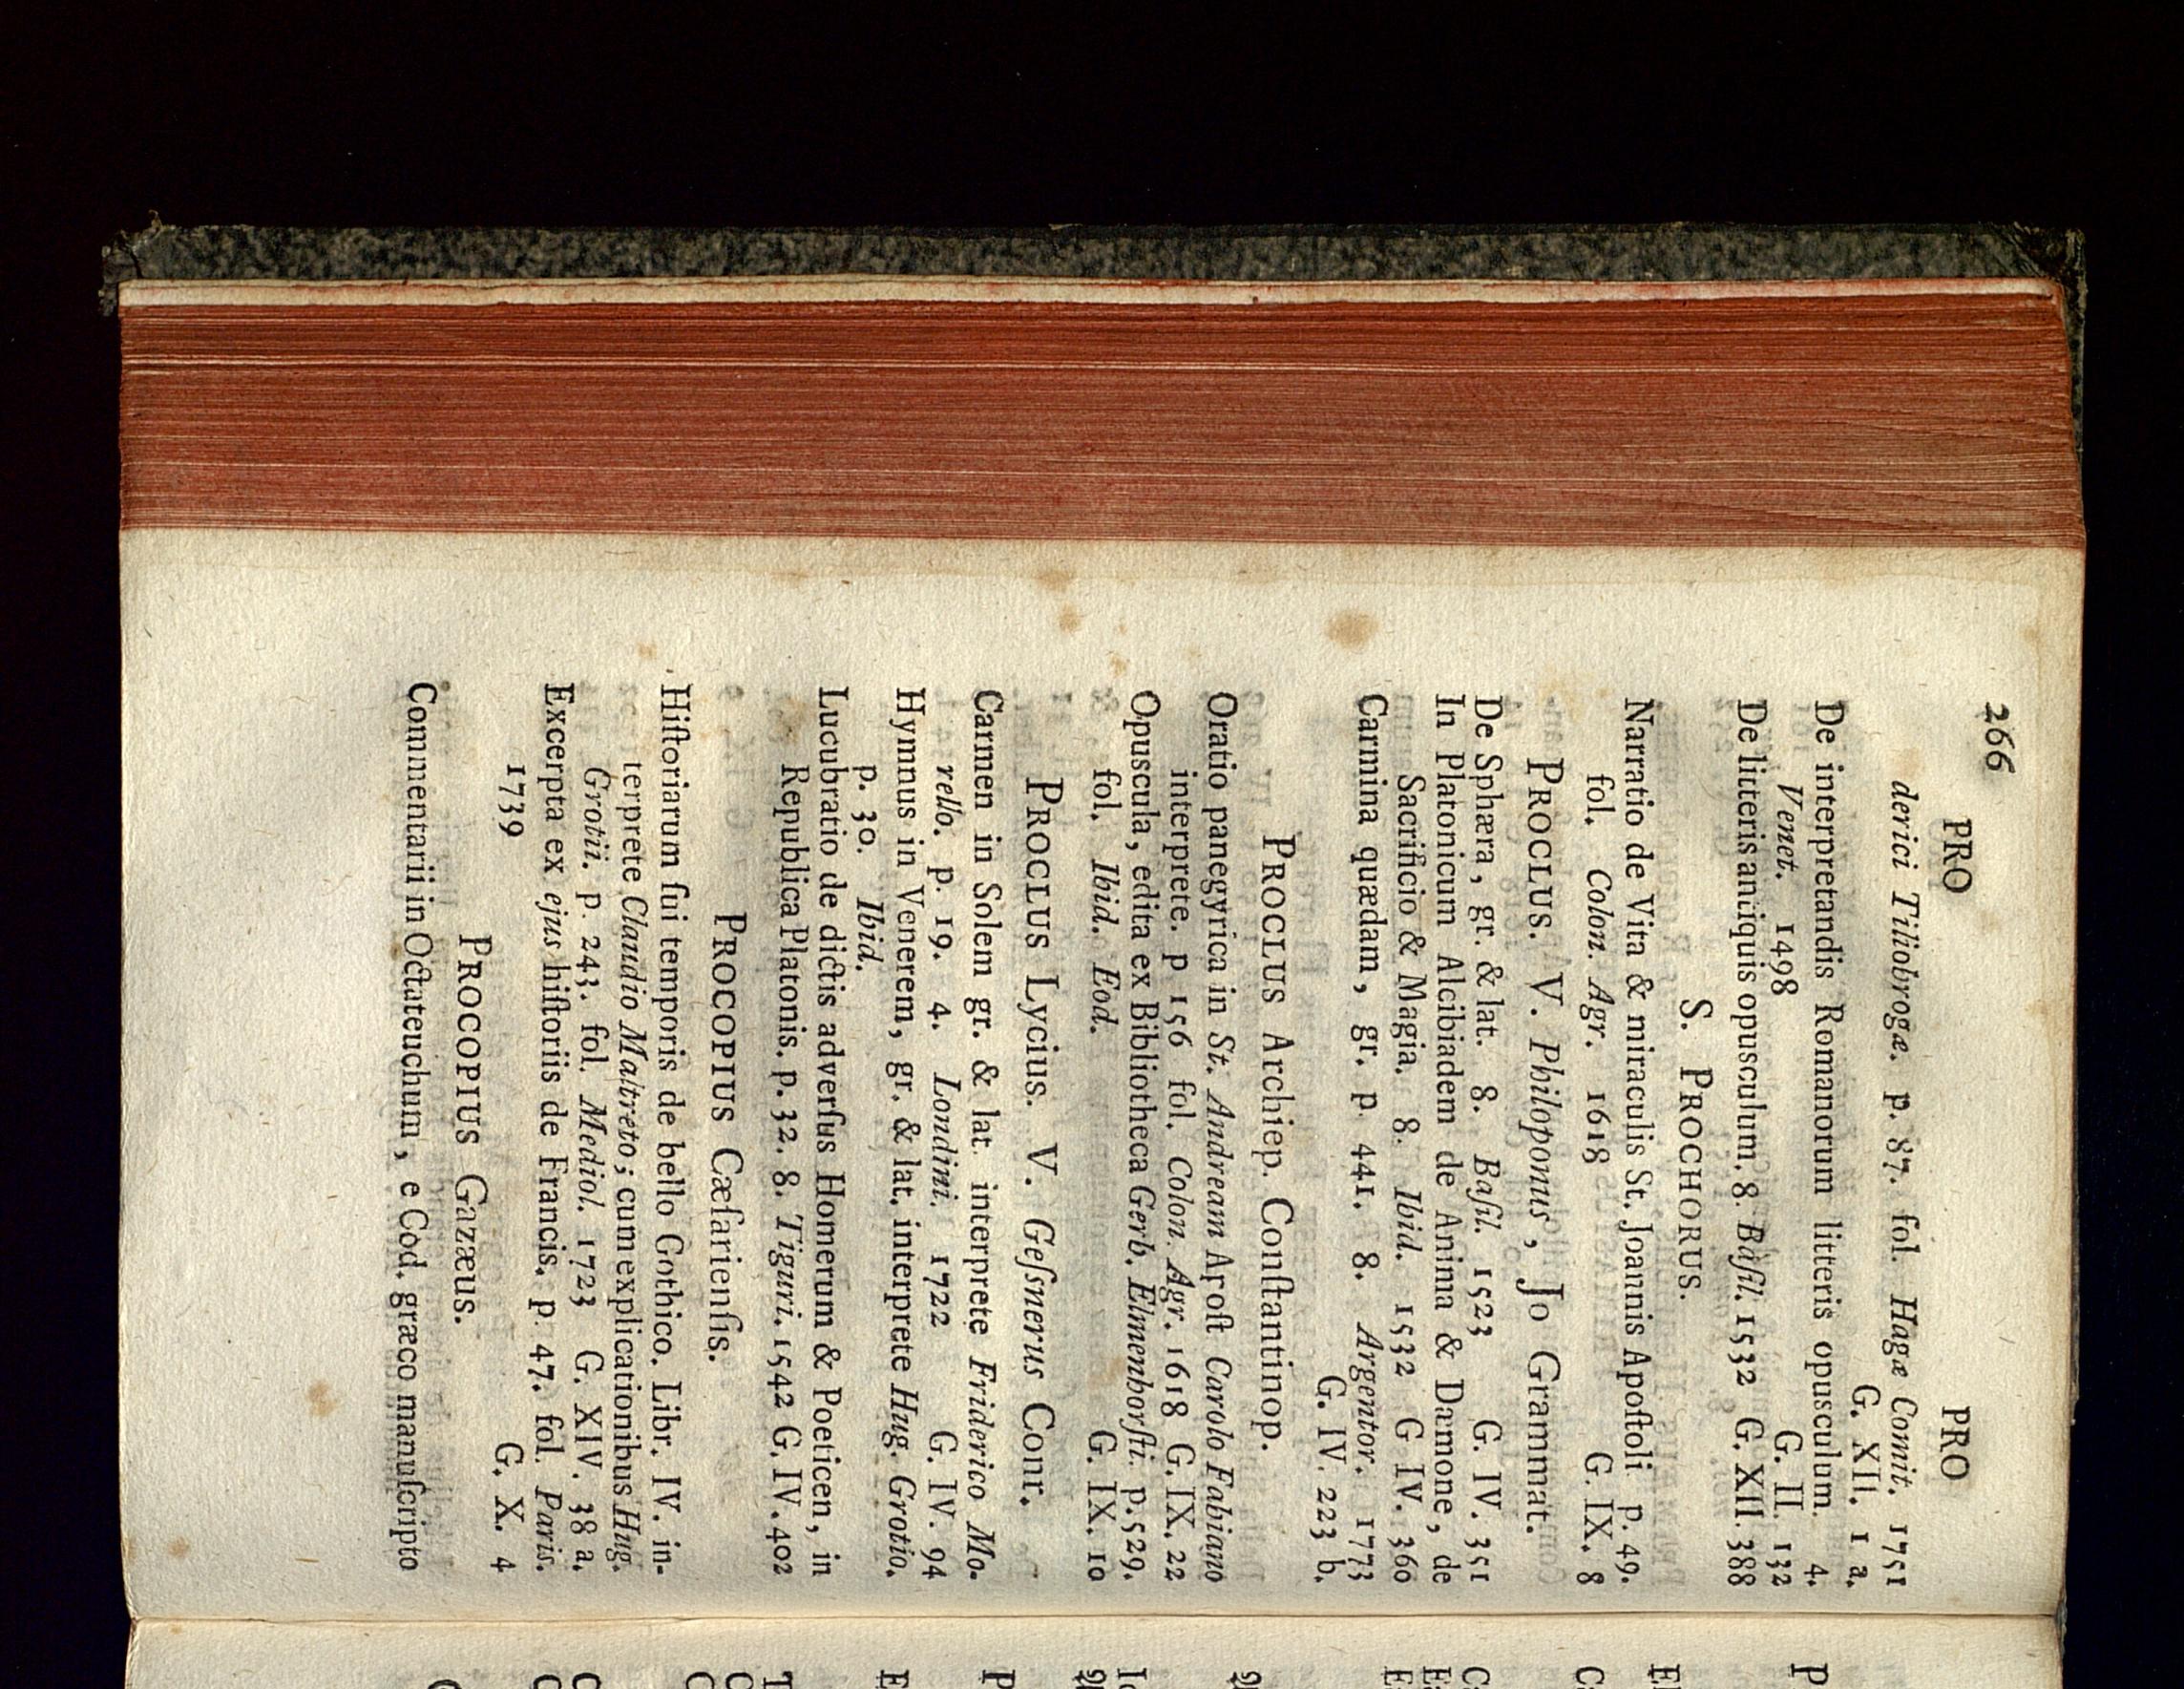 266
PRO PRO
derici Tiliobrogæ. p. 87. fol. Hagæ Comit. 1751
G. XII. 1 a.
De interpretandis Romanorum litteris opusculum. 4.
Venet. 1498 G. II. 132
De litteris antiquis opusculum. 8. Basil. 1532 G. XII. 388
S. PROCHORUS.
Narratio de Vita & miraculis St. Joannis Apoſtoli p. 49.
fol. Colon. Agr. 1618 G. IX. 8
PROCLUS. V. Philoponus, Jo Grammat.
De Sphæra, gr. & lat. 8. Baſil. 1523 G. IV. 351
In Platonicum Alcibiadem de Aninna & Dæmone, de
Sacrificio & Magia. 8. Ibid. 1532 G IV. 360
Carmina quædam, gr. p. 441. 8. Argentor. 1773
G. IV. 223 b.
PROCLUS Archiep. Conſtantinop.
Oratio panegyrica in St. Andream Apoſt Carolo Fabiano
interprete. p 156 fol. Colon. Agr. 1618 G. IX. 22
Opuscula, edita ex Bibliotheca Gerb. Elmenhorſti. p. 529.
fol. Ibid. Eod. G. IX. 10
PROCLUS Lycius. V. Geſsnerus Conr.
Carmen in Solem gr. & lat. interprete Friderico Mo-
rello. p. 19. 4. Londini. 1722 G. IV. 94
Hymnus in Venerem, gr. & lat. interprete Hug. Grotio.
p. 30. Ibid.
Lucubratio de dictis adverſus Homerum & Poeticen, in
Republica Platonis. p. 32. 8. Tiguri. 1542 G. IV. 402
PROCOPIUS Cæſarienſis.
Hiſtoriarum ſui temporis de bello Gothico. Libr. IV. in-
terprete Claudio Maltreto; cum explicationibus Hug.
Grotii. p. 243. fol. Mediol. 1723 G. XIV. 38 a.
Excerpta ex ejus hiſtoriis de Francis. p. 47. fol. Paris.
1739 G. X. 4
PROCOPIUS Gazæus.
Commentarii in Octateuchum, e Cod. græco manuſcripto